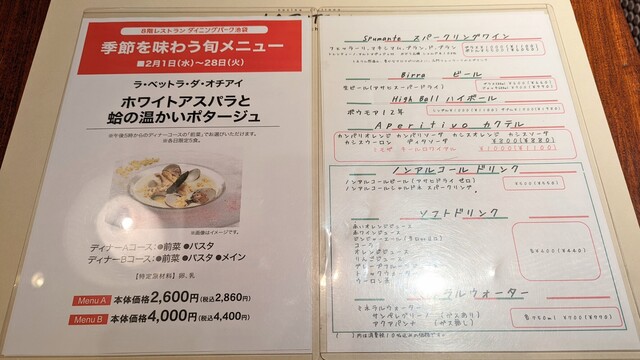 8階レストラン ダイニングパーク池袋
季節を味わう旬メニュー
■2月1日(水)〜28日(火)
ラ・ベットラ・ダ・オチアイ
ホワイトアスパラと
蛤の温かいポタージュ
※午後5時からのディナーコースの「前菜」でお選びいただけます。
※各日限定5食。
※画像はイメージです。
ディナーAコース:●前菜 ●パスタ
ディナーBコース:●前菜 ●パスタ ●メイン
【特定原材料】卵、乳
Menu A 本体価格2,600円(税込2,860円)
Menu B 本体価格4,000円(税込4,400円)
Spumante スパークリングワイン
Birra ビール
生ビール(アサヒスーパードライ)
High Ball ハイボール
ボウモア12年
Aperitivo カクテル
カンパリオレンジ カンパリソーダ カシスオレンジ カシスソーダ
カシスウーロン ディタソーダ ¥800(¥880)
キールロワイヤル ¥1000(¥1100)
ノンアルコールドリンク
ノンアルコールビール(アサヒドライ ゼロ)
ノンアルコールシャルドネ スパークリング
ソフトドリンク
赤ワインジュース
コーラ
オレンジジュース
りんごジュース
ウーロン茶
ラルウォーター
ミネラルウォーター
サンペレグリーノ (ガスあり)
アクアパンナ (ガス無し)
各750ml ¥700(¥770)